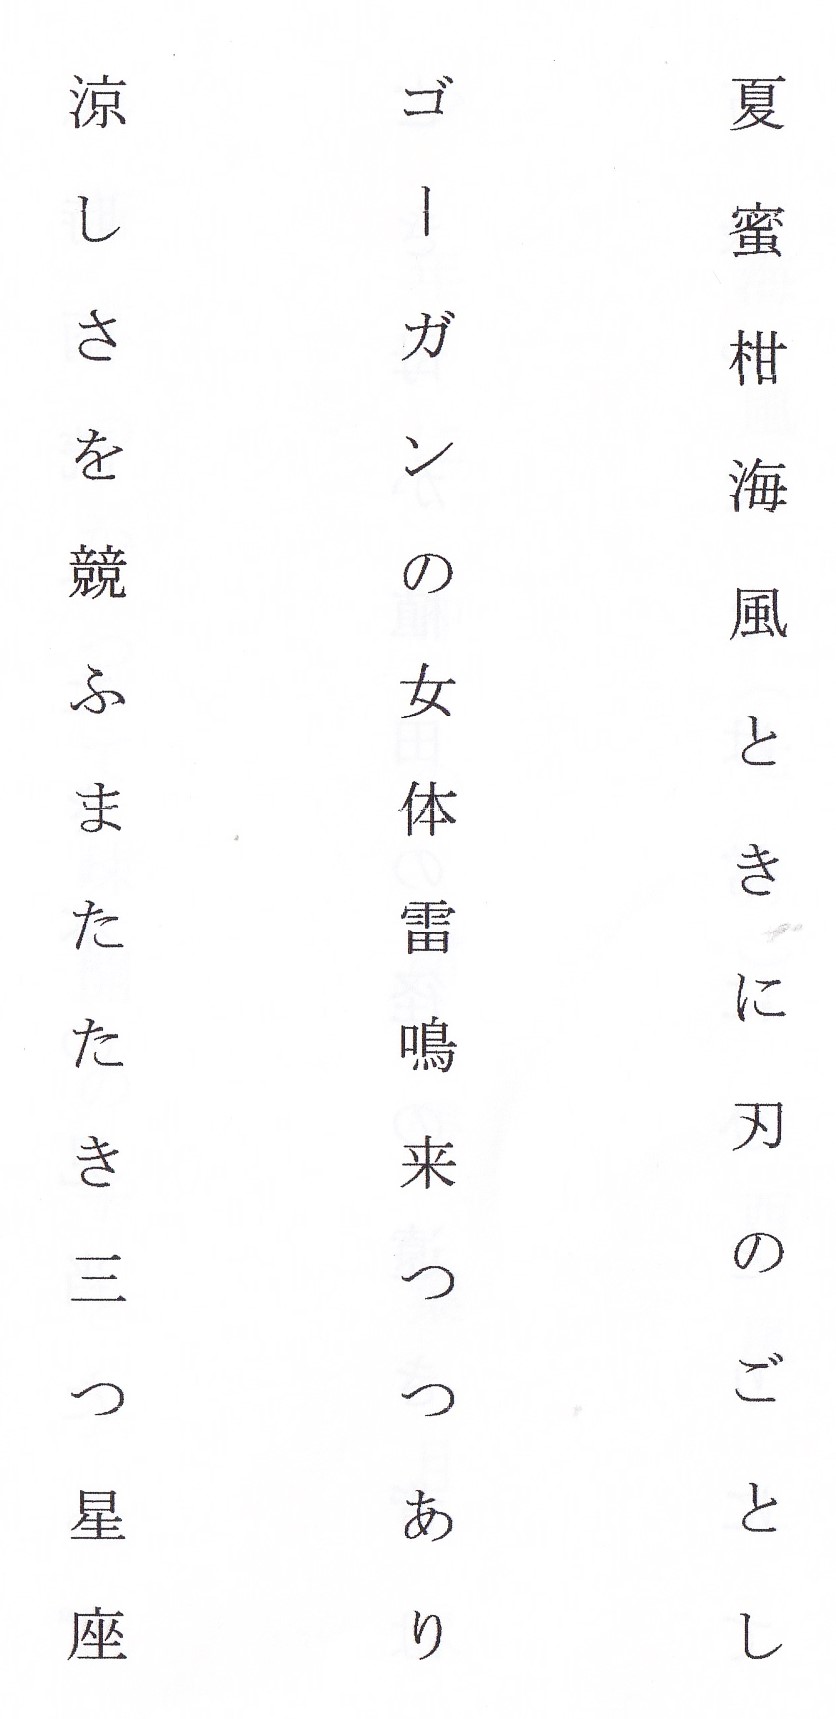 夏蜜柑海風ときに刃のごとし
ゴーガンの女体雷鳴来つつあり
涼しさを競ふまたたき三つ星座